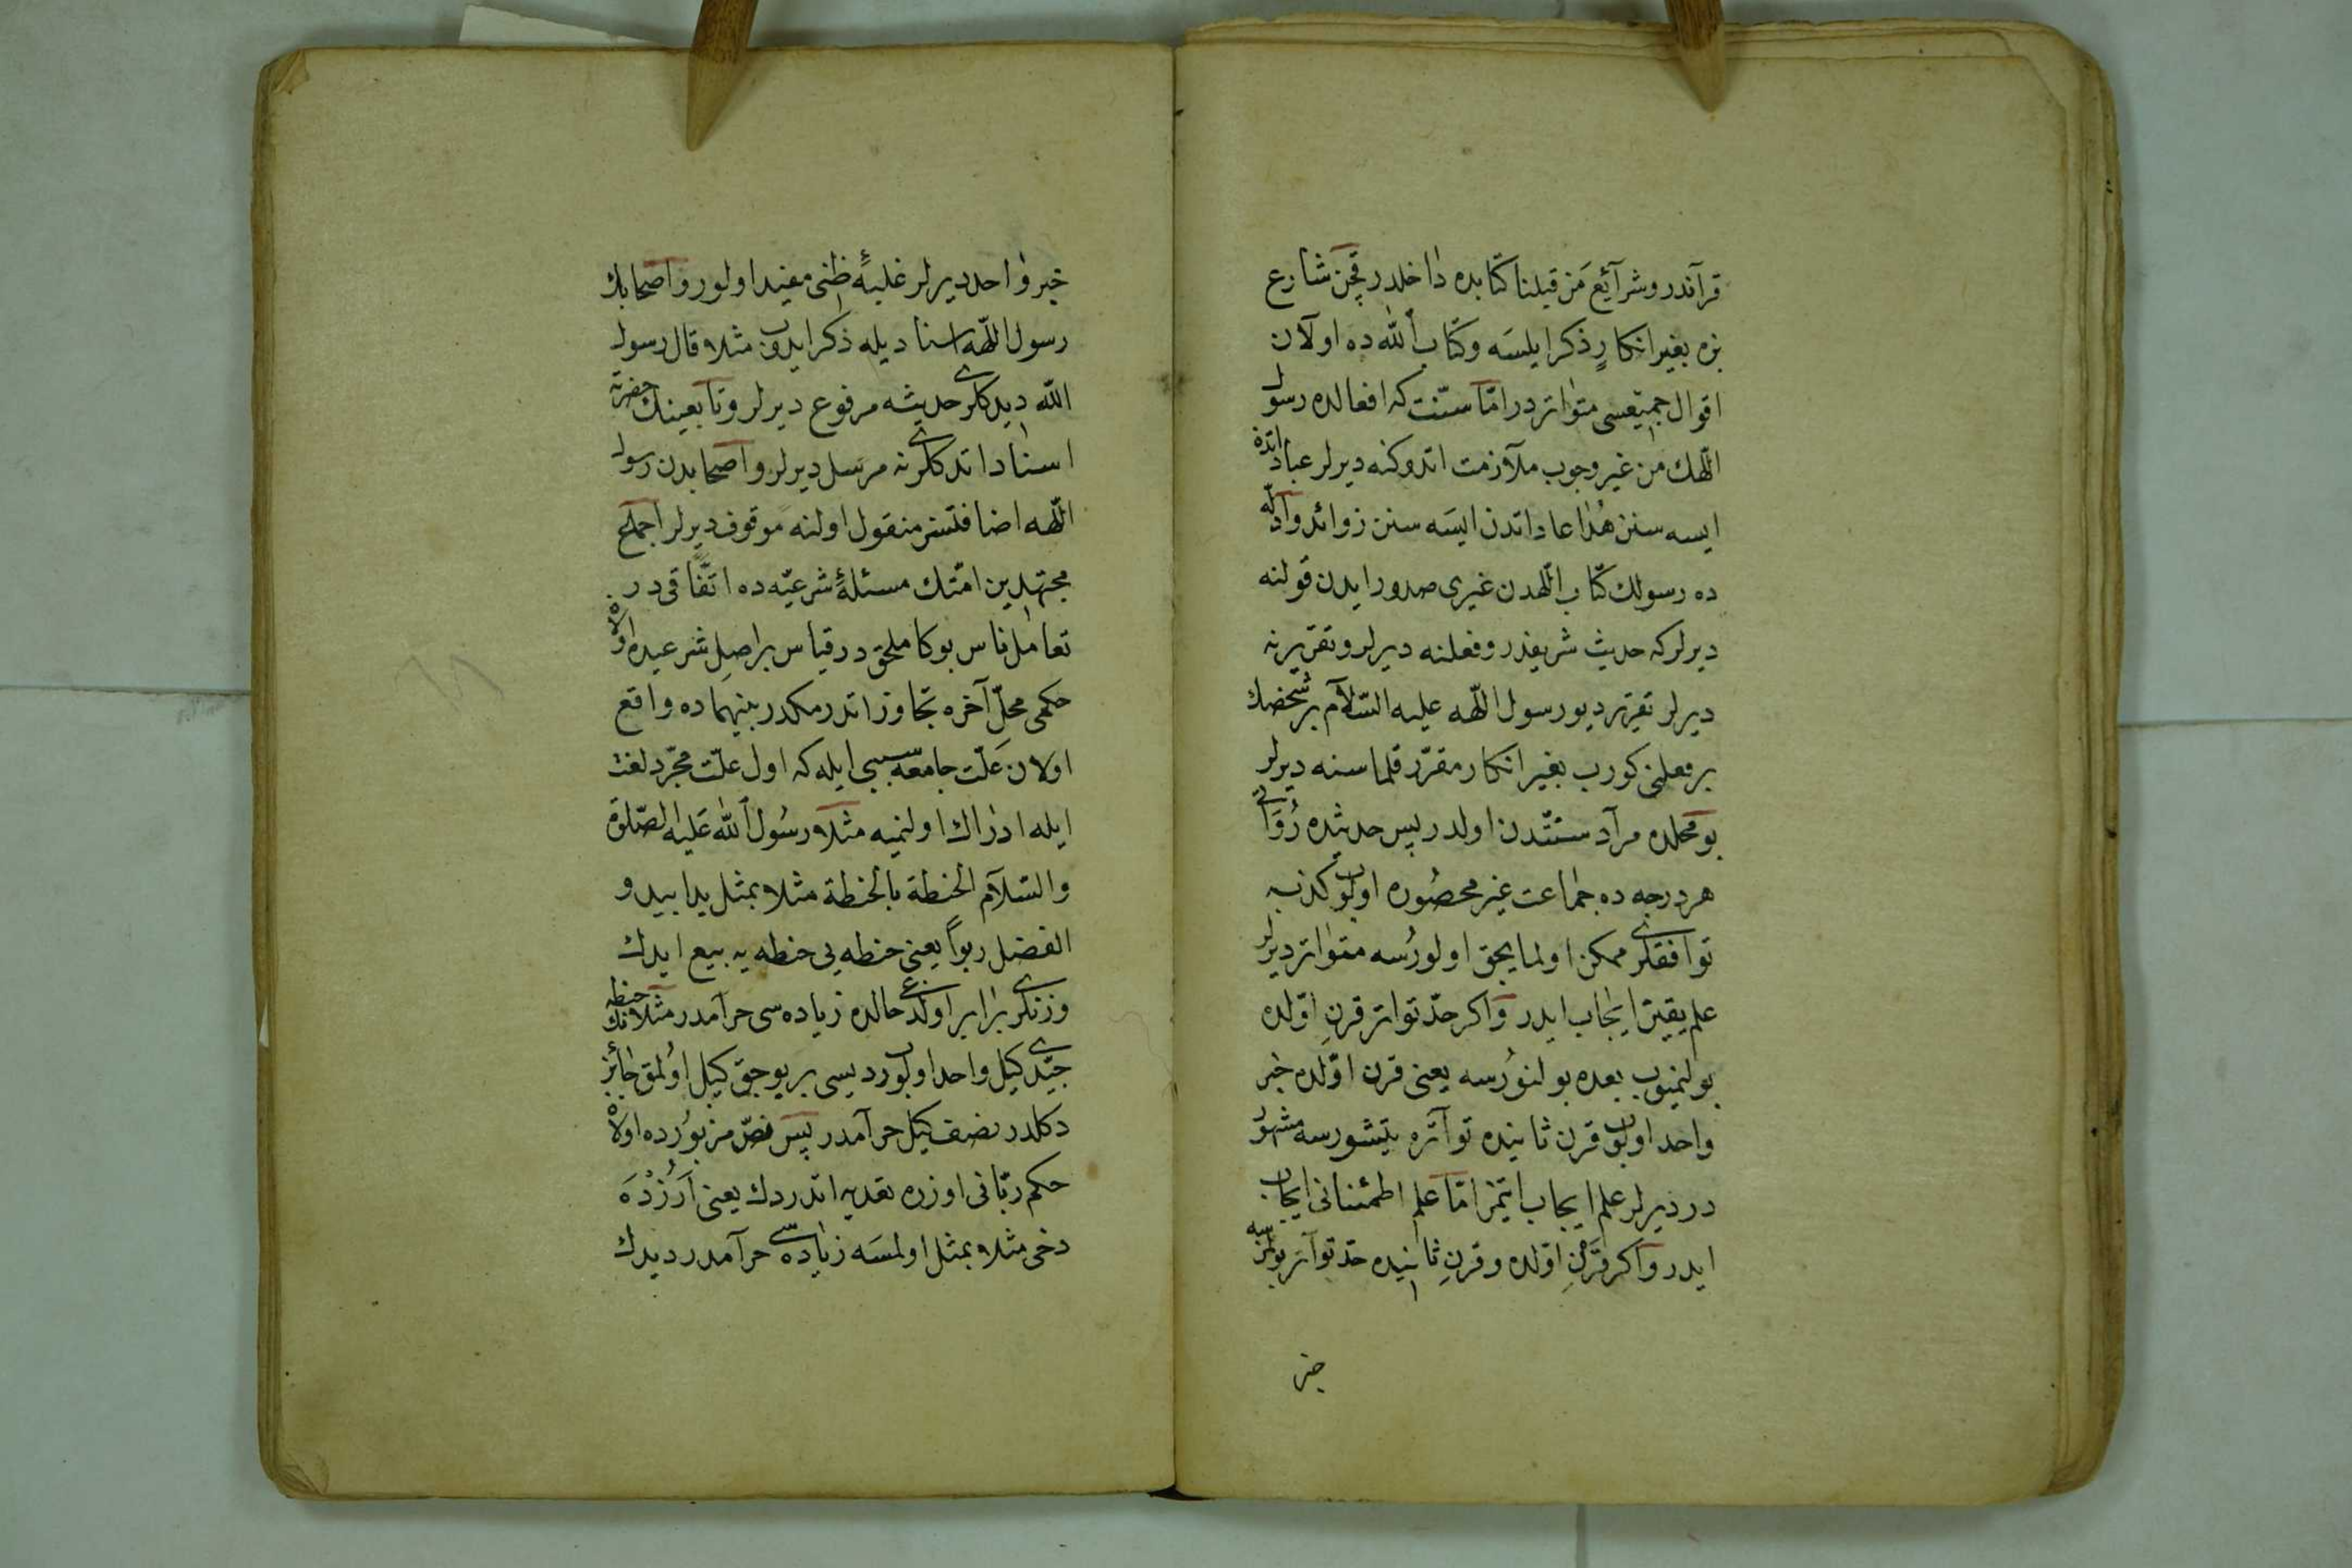 قرآندر وشرآئع من قبلنا كتابده داخلدر قچن شارع
بزه بغير انكارٍ ذكر ايلسه وكتاب الله ده اولان
اقوال جميعسى متواتردر امّا سنّت كه افعالده رسول
اللّهك من غير وجوب ملازمت اتدوكنه ديرلر عباداتده
ايسه سنن هُدا عاداتدن ايسه سنن زوائد وادلّه
ده رسولك كتاب اللّهدن غيرى صدور ايدن قولنه
ديرلركه حديث شريفدر وفعلنه ديرلر وتقريرنه
ديرلر تقرير ديو رسول اللّه عليه السّلام بر شخصك
بر فعلنى كورب بغير انكار مقرّر قلماسنه ديرلر
بو محلده مراد سنتدن اولدر پس حديثده رُوَاتى
هر درجه ده جماعت غير محصوره اولوب كذبه
توافقلرى ممكن اولمايجق اولورسه متواتر ديرلر
علم يقين ايجاب ايدر واكر حدّ تواتر قرنِ اوّلده
بولنميوب بعده بولنورسه يعنى قرن اوّلده خبر
واحد اولوب قرن ثانيده تواتره يتيشورسه مشهور
در ديرلر علم ايجاب ايتمز امّا علم اطمئنانى ايجاب
ايدر واكر قرنِ اوّلده وقرنِ ثانيده حدّ تواتر بولنمزسه
خبر
خبر واحد ديرلر غلبۀ ظنى مفيد اولور واصحابك
رسول اللّهه اسناديله ذكر ايدوب مثلا قال رسول
اللّه ديدكلرى حديثه مرفوع ديرلر وتابعينك حضرته
اسناد اتدكلرينه مرسل ديرلر واصحابدن رسول
اللّهه اضافتسز منقول اولنه موقوف ديرلر اجماع
مجتهدين امّتك مسئلۀ شرعيّه ده اتّفاقى در
تعامل ناس بوكا ملحق در قياس بر اصلِ شرعيده اولان
حكمى محلّ آخره تجاوز اتدرمكدر بينهماده واقع
اولان علّت جامعه سببى ايله كه اول علّت مجرّد لغت
ايله ادراك اولنميه مثلا رسُول اللّه عليه الصّلوة
والسّلام الحنطة بالحنطة مثلا بمثل يدا بيد و
الفضل ربوا يعنى حنطه يى حنطه يه بيع ايدك
وزنلرى برابر اولدغى حالده زياده سى حرامدر مثلا حنطه نك
جيّدى كيل واحد اولوب رديسى بر بوجق كيل اولمق جائز
دكلدر نصف كيل حرامدر پس نصّ مزبورده اولان
حكم ربّانى اوزره تعديه اتدردك يعنى اَرُزْدَه
دخى مثلا بمثل اولمسه زياده سى حرامدر ديدك